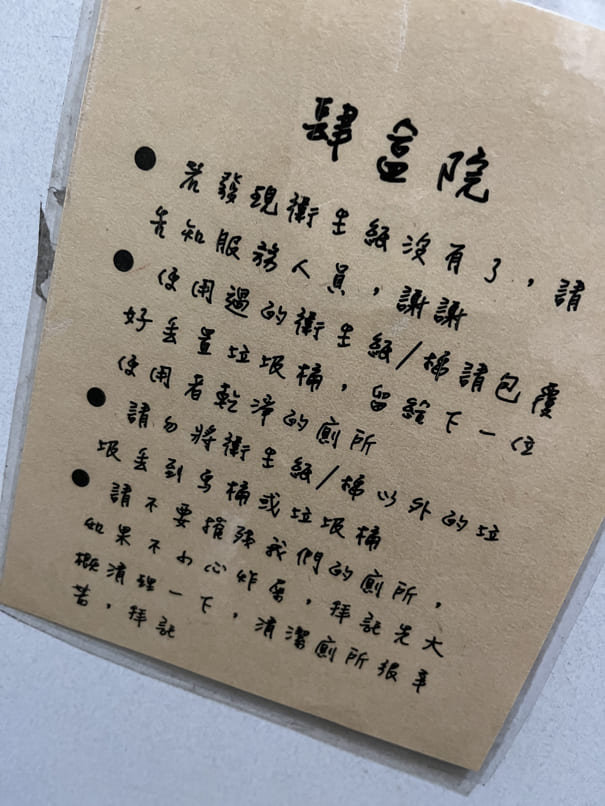 肆盒院
● 若發現衛生紙沒有了，請
告知服務人員，謝謝
● 使用過的衛生紙/棉請包覆
好丟置垃圾桶，留給下一位
使用者乾淨的廁所
● 請勿將衛生紙/棉以外的垃
圾丟到馬桶或垃圾桶
● 請不要摧殘我們的廁所，
如果不小心炸畜，拜託先大
概清理一下，清潔廁所很辛
苦，拜託